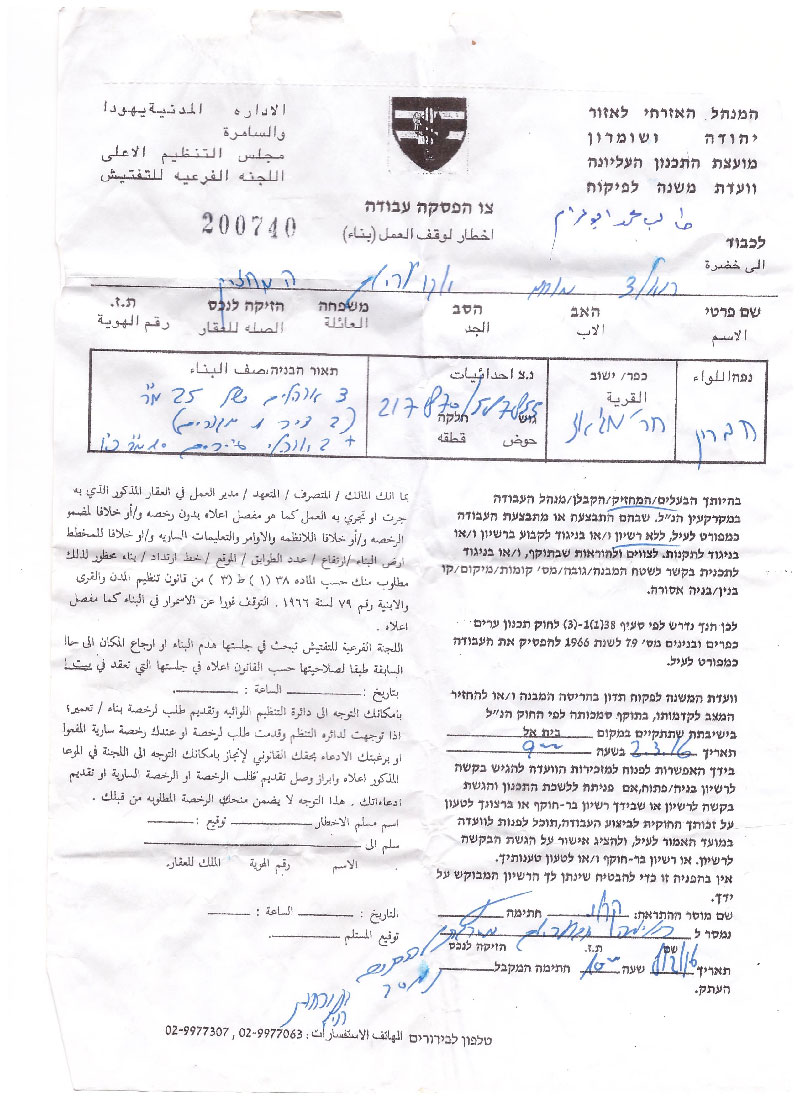 המנהל האזרחי לאזור
יהודה ושומרון
מועצת התכנון העליונה
וועדת משנה לפיקוח
الاداره المدنية يهودا
والسامرة
مجلس التنظيم الاعلى
اللجنه الفرعيه للتفتيش
צו הפסקה עבודה
اخطار لوقف العمل (بناء)
200740
לכבוד
الى حضرة
שם פרטי האב הסב משפחה הזיקה לנכס ת.ז.
الاسم الاب الجد العائلة الصله للعقار رقم الهوية
נפה/اللواء
חברון
כפר/ ישוב
القرية
נ.צ احداثيات
217870/587855
גוש חלקה
حوض قطقه
תאור הבניה/وصف البناء
בהיותך הבעלים/המחזיק/הקבלן/מנהל העבודה
במקרקעין הנ"ל. שבהם התבצעה או מתבצעת העבודה
כמפורט לעיל, ללא רשיון או בניגוד לקבוע ברשיון ו/או
בניגוד לתקנות. לצווים ולהוראות שבתוקף, ו/או בניגוד
לתכנית בקשר לשטח המבנה/גובה/מס' קומות/מיקום/קו
בנין/בניה אסורה.
לכן הנך נדרש לפי סעיף 38(1)-(3) לחוק תכנון ערים
כפרים ובנינים מס' 79 לשנת 1966 להפסיק את העבודה
כמפורט לעיל.
וועדת המשנה לפקוח תדון בהריסה המבנה ו/או להחזיר
המצב לקדמותו, בתוקף סמכותה לפי החוק הנ"ל
בישיבתה שתתקיים במקום בית אל
תאריך 2.3.16 בשעה 9
בידך האפשרות לפנות למזכירות הוועדה להגיש בקשה
לרשיון בניה/פתוח,אם פניתה ללשכת התכנון והגשת
בקשה לרשיון או שבידך רשיון בר-חוקף או ברצונך לטעון
על זכותך החוקית לביצוע העבודה,תוכל לפנות לוועדה
במועד האמור לעיל, ולהציג אישור על הגשת הבקשה
לרשיון. או רשיון בר-חוקף ו/או לטעון טענותיך.
אין בהפניה זו כדי להבטיח שינתן לך הרשיון המבוקש על
ידך.
שם מוסר ההתראה: חתימה
נמסר ל
שם ת.ז. הזיקה לנכס
תאריך שעה 10 חתימה המקבל
העתק.
بما انك المالك / المتصرف / المتعهد / مدير العمل في العقار المذكور الذي به
جرت او تجري به العمل كما هو مفصل اعلاه بدون رخصه و/أو خلافا لمضمو
الرخصه و/أو خلافا للانظمه والاوامر والتعليمات الساريه و/او خلافا للمخطط
ارض البناء/ارتفاع / عدد الطوابق / الموقع / خط ارتداد / بناء محظور لذلك
مطلوب منك حسب الماده ٣٨ (١) ط (٣) من قانون تنظيم المدن والقرى
والابنية رقم ٧٩ لسنة ١٩٦٦ . التوقف فورا عن الاسمرار في البناء كما مفصل
اعلاه .
اللجنة الفرعية للتفتيش تبحث في جلستها هدم البناء او ارجاع المكان الى حال
السابقة طبقا لصلاحيتها حسب القانون اعلاه في جلستها التي تعقد في بيت ا
بتاريخ : الساعة :
بامكانك التوجه الى دائرة التنظيم اللوائيه وتقديم طلب لرخصة بناء / تعمير؛
اذا توجهت لدائره التنظم وقدمت طلب لرخصة او عندك رخصة سارية المفعوا
او برغبتك الادعاء بحقك القانوني لإنجاز بامكانك التوجه الى اللجنة في الموعا
المذكور اعلاه وابراز وصل تقديم طلب الرخصة او الرخصة السارية او تقديم
ادعاءاتك . هذا التوجه لا يضمن منحك الرخصة المطلوبه من قبلك .
اسم مسلم الاخطار توقيع :
سلم الى
الاسم رقم الهوية الملك للعقار.
التاريخ : الساعة :
توقيع المستلم
טלפון לבירורים الهاتف الاستفسارات : 02-9977063 , 02-9977307